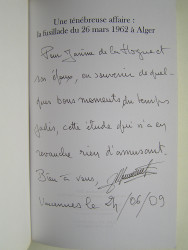 Une ténébreuse affaire :
la fusillade du 26 mars 1962 à Alger
Pour Janine de la Hogue et
son époux, en souvenir de quel-
ques bons moments du temps
jadis, cette étude qui n'a en
revanche rien d'amusant.
Bien à vous,
Varennes le 24/06/09